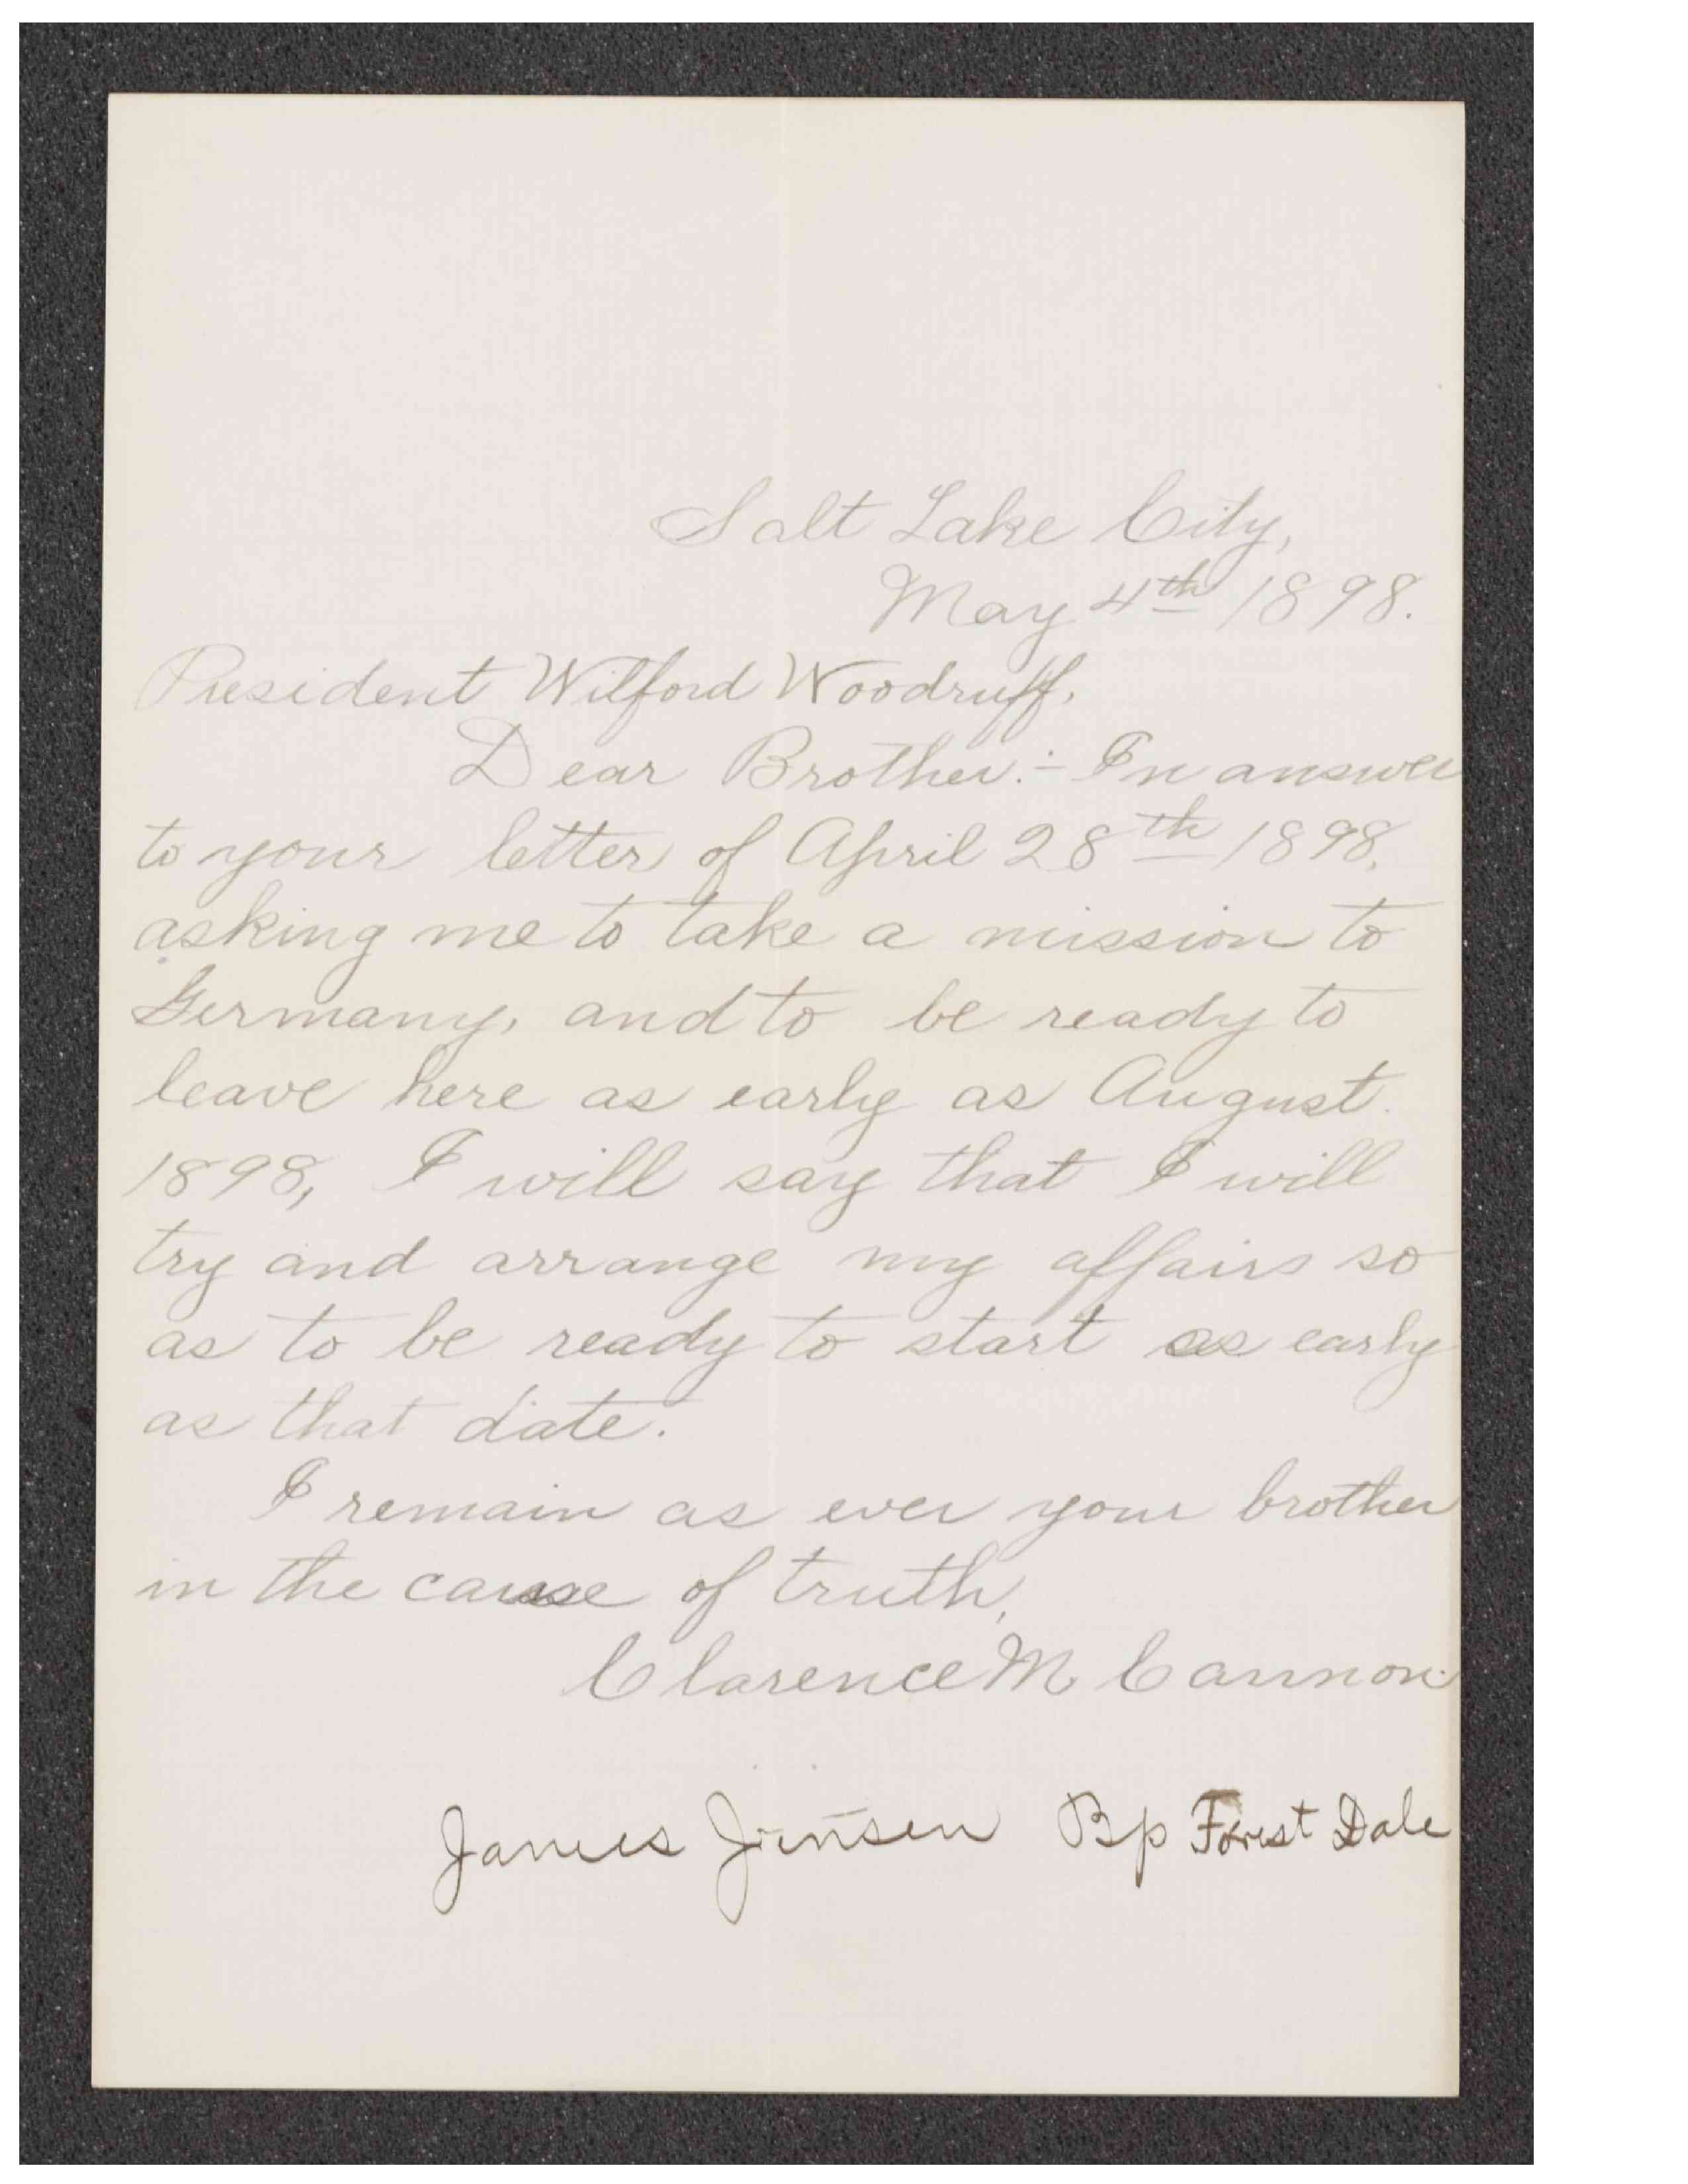 Salt Lake City,
May 4th 1898.
President Wilford Woodruff.
Dear Brother:- In answer
to your letter of April 28th 1898,
asking me to take a mission to
Germany, and to be ready to
leave here as early as August.
1898, I will say that I will
try and arrange my affairs so
as to be ready to start as early
as that date.
I remain as ever your brother
in the cause of truth,
Clarence M Cannon.
James Jensen Bp Forest Dale